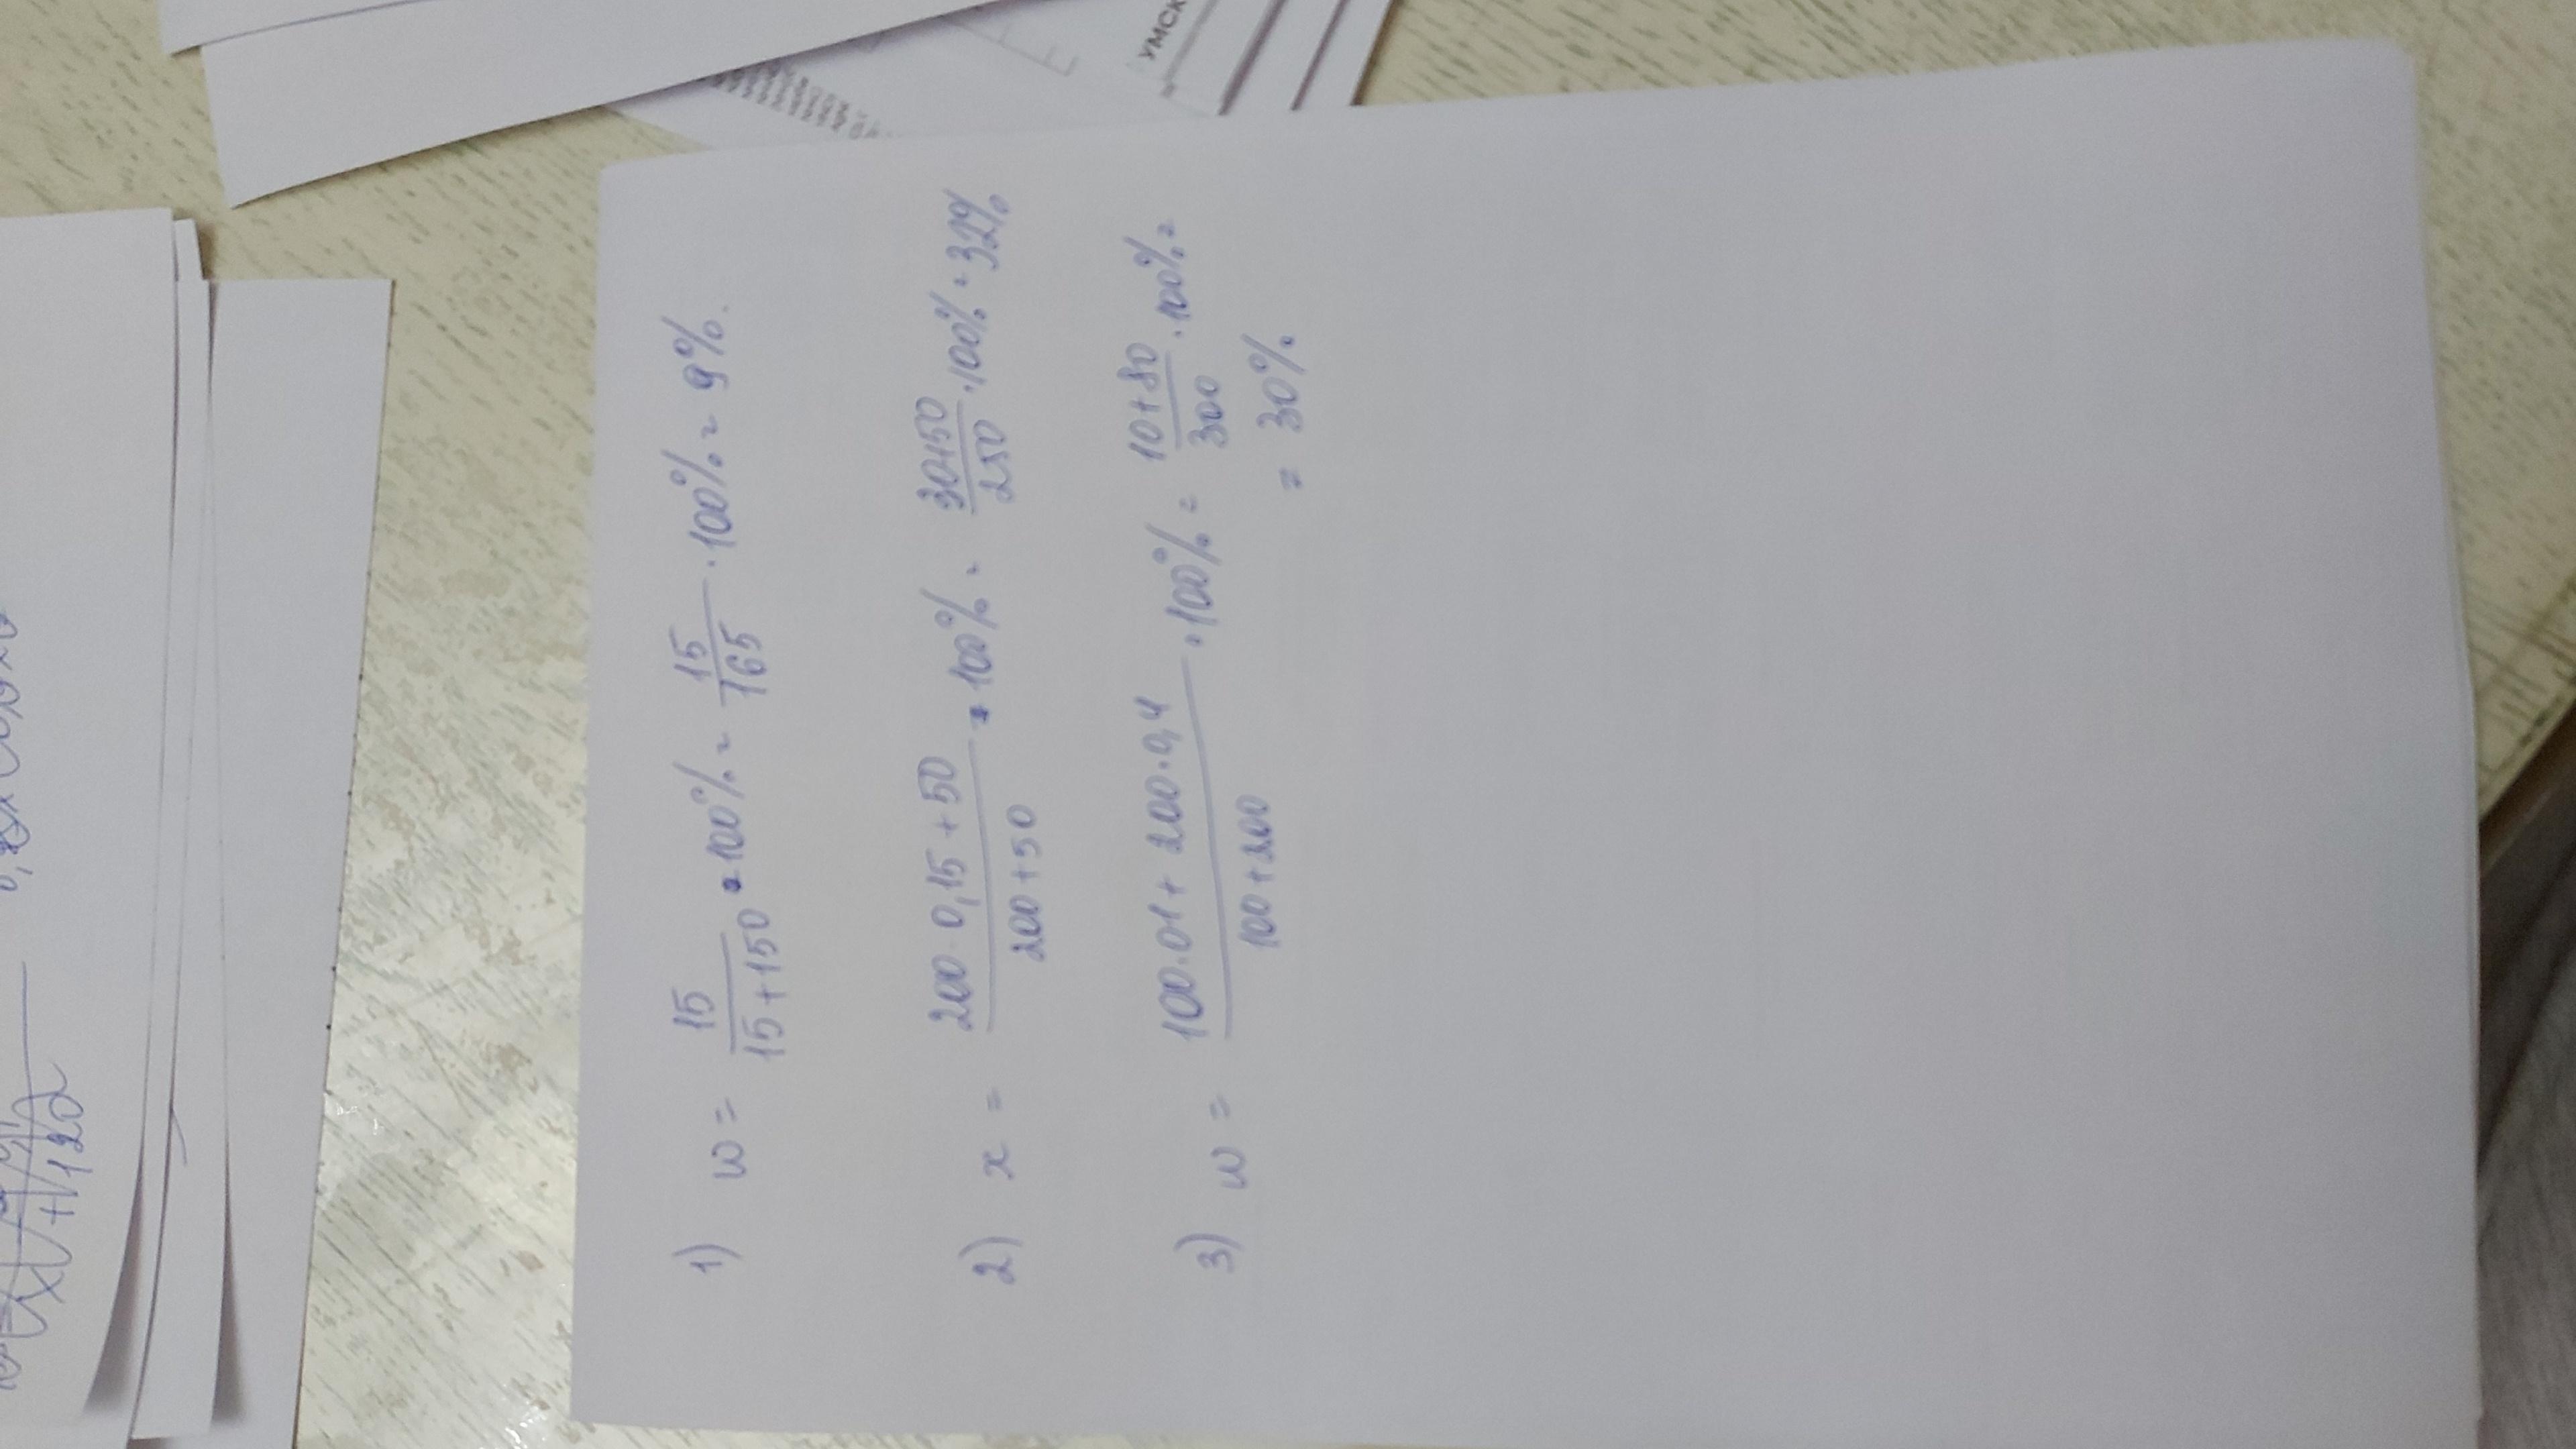 1) w = 15/(15+150) · 100% = 15/165 · 100% = 9%.
2) x = (200 · 0,15 + 50)/(200+50) · 100% = (30+50)/250 · 100% = 32%
3) w = (100 · 0,1 + 200 · 0,4)/(100+200) · 100% = (10+80)/300 · 100% =
= 30%
УМСК
+ 120